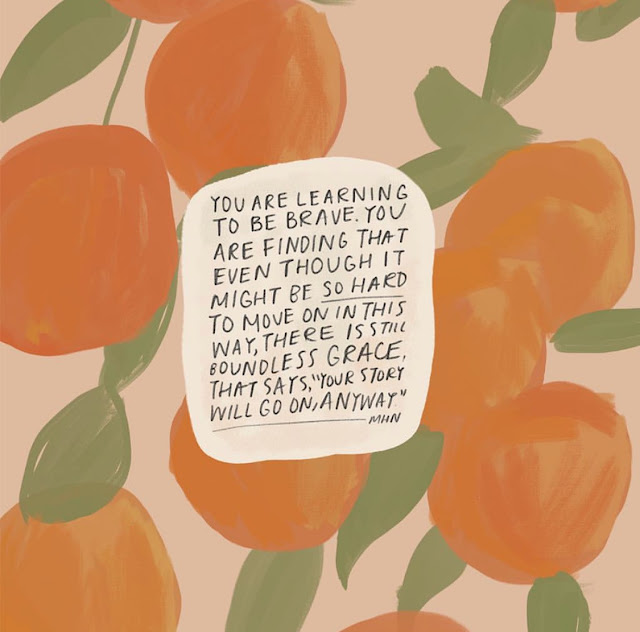 YOU ARE LEARNING
TO BE BRAVE. YOU
ARE FINDING THAT
EVEN THOUGH IT
MIGHT BE SO HARD
TO MOVE ON IN THIS
WAY, THERE IS STILL
BOUNDLESS GRACE,
THAT SAYS, "YOUR STORY
WILL GO ON, ANYWAY"
MHN